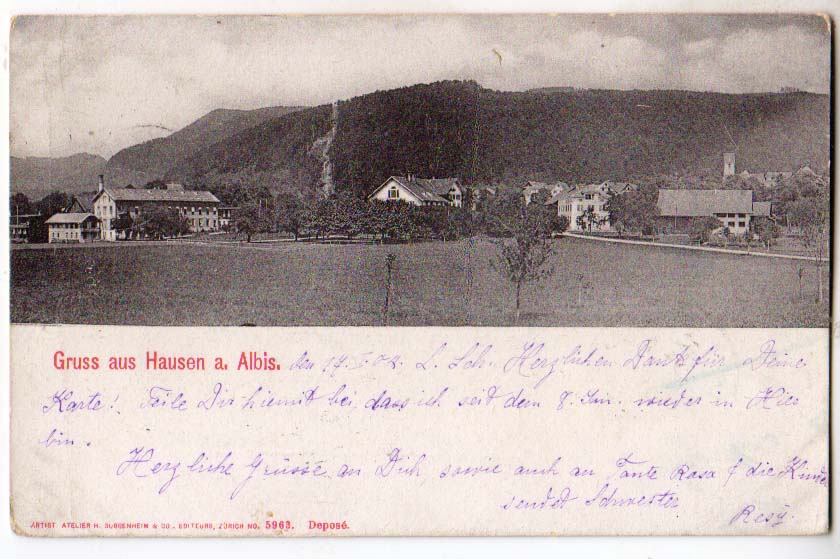 Gruss aus Hausen a. Albis. den 17. I. 02. L. Sch. Herzlichen Dank für Deine
Karte! Teile Dir hiemit bei, dass ich seit dem 8. Jan. wieder in Hier
bin.
Herzliche Grüsse an Dich, sowie auch an Tante Rosa & die Kinder
sendet Schwester
Resy.
ARTIST. ATELIER H. GUGGENHEIM & CO., EDITEURS, ZÜRICH NO. 5963. Deposé.